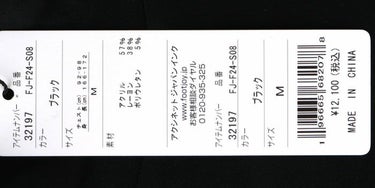 アイテムナンバー・品番
32197 FJ-F24-S08
カラー
ブラック
サイズ
チェスト(cm) 92-98
身長(cm) 166-172
M
素材
アクリル 57%
レーヨン 38%
ポリウレタン 5%
アクシネット ジャパン インク
www.footjoy.jp
お客様相談ダイヤル
0120-935-325
アイテムナンバー・品番
32197 FJ-F24-S08
カラー
ブラック
サイズ
M
1 96665 68207 8
¥12,100(税込)
MADE IN CHINA